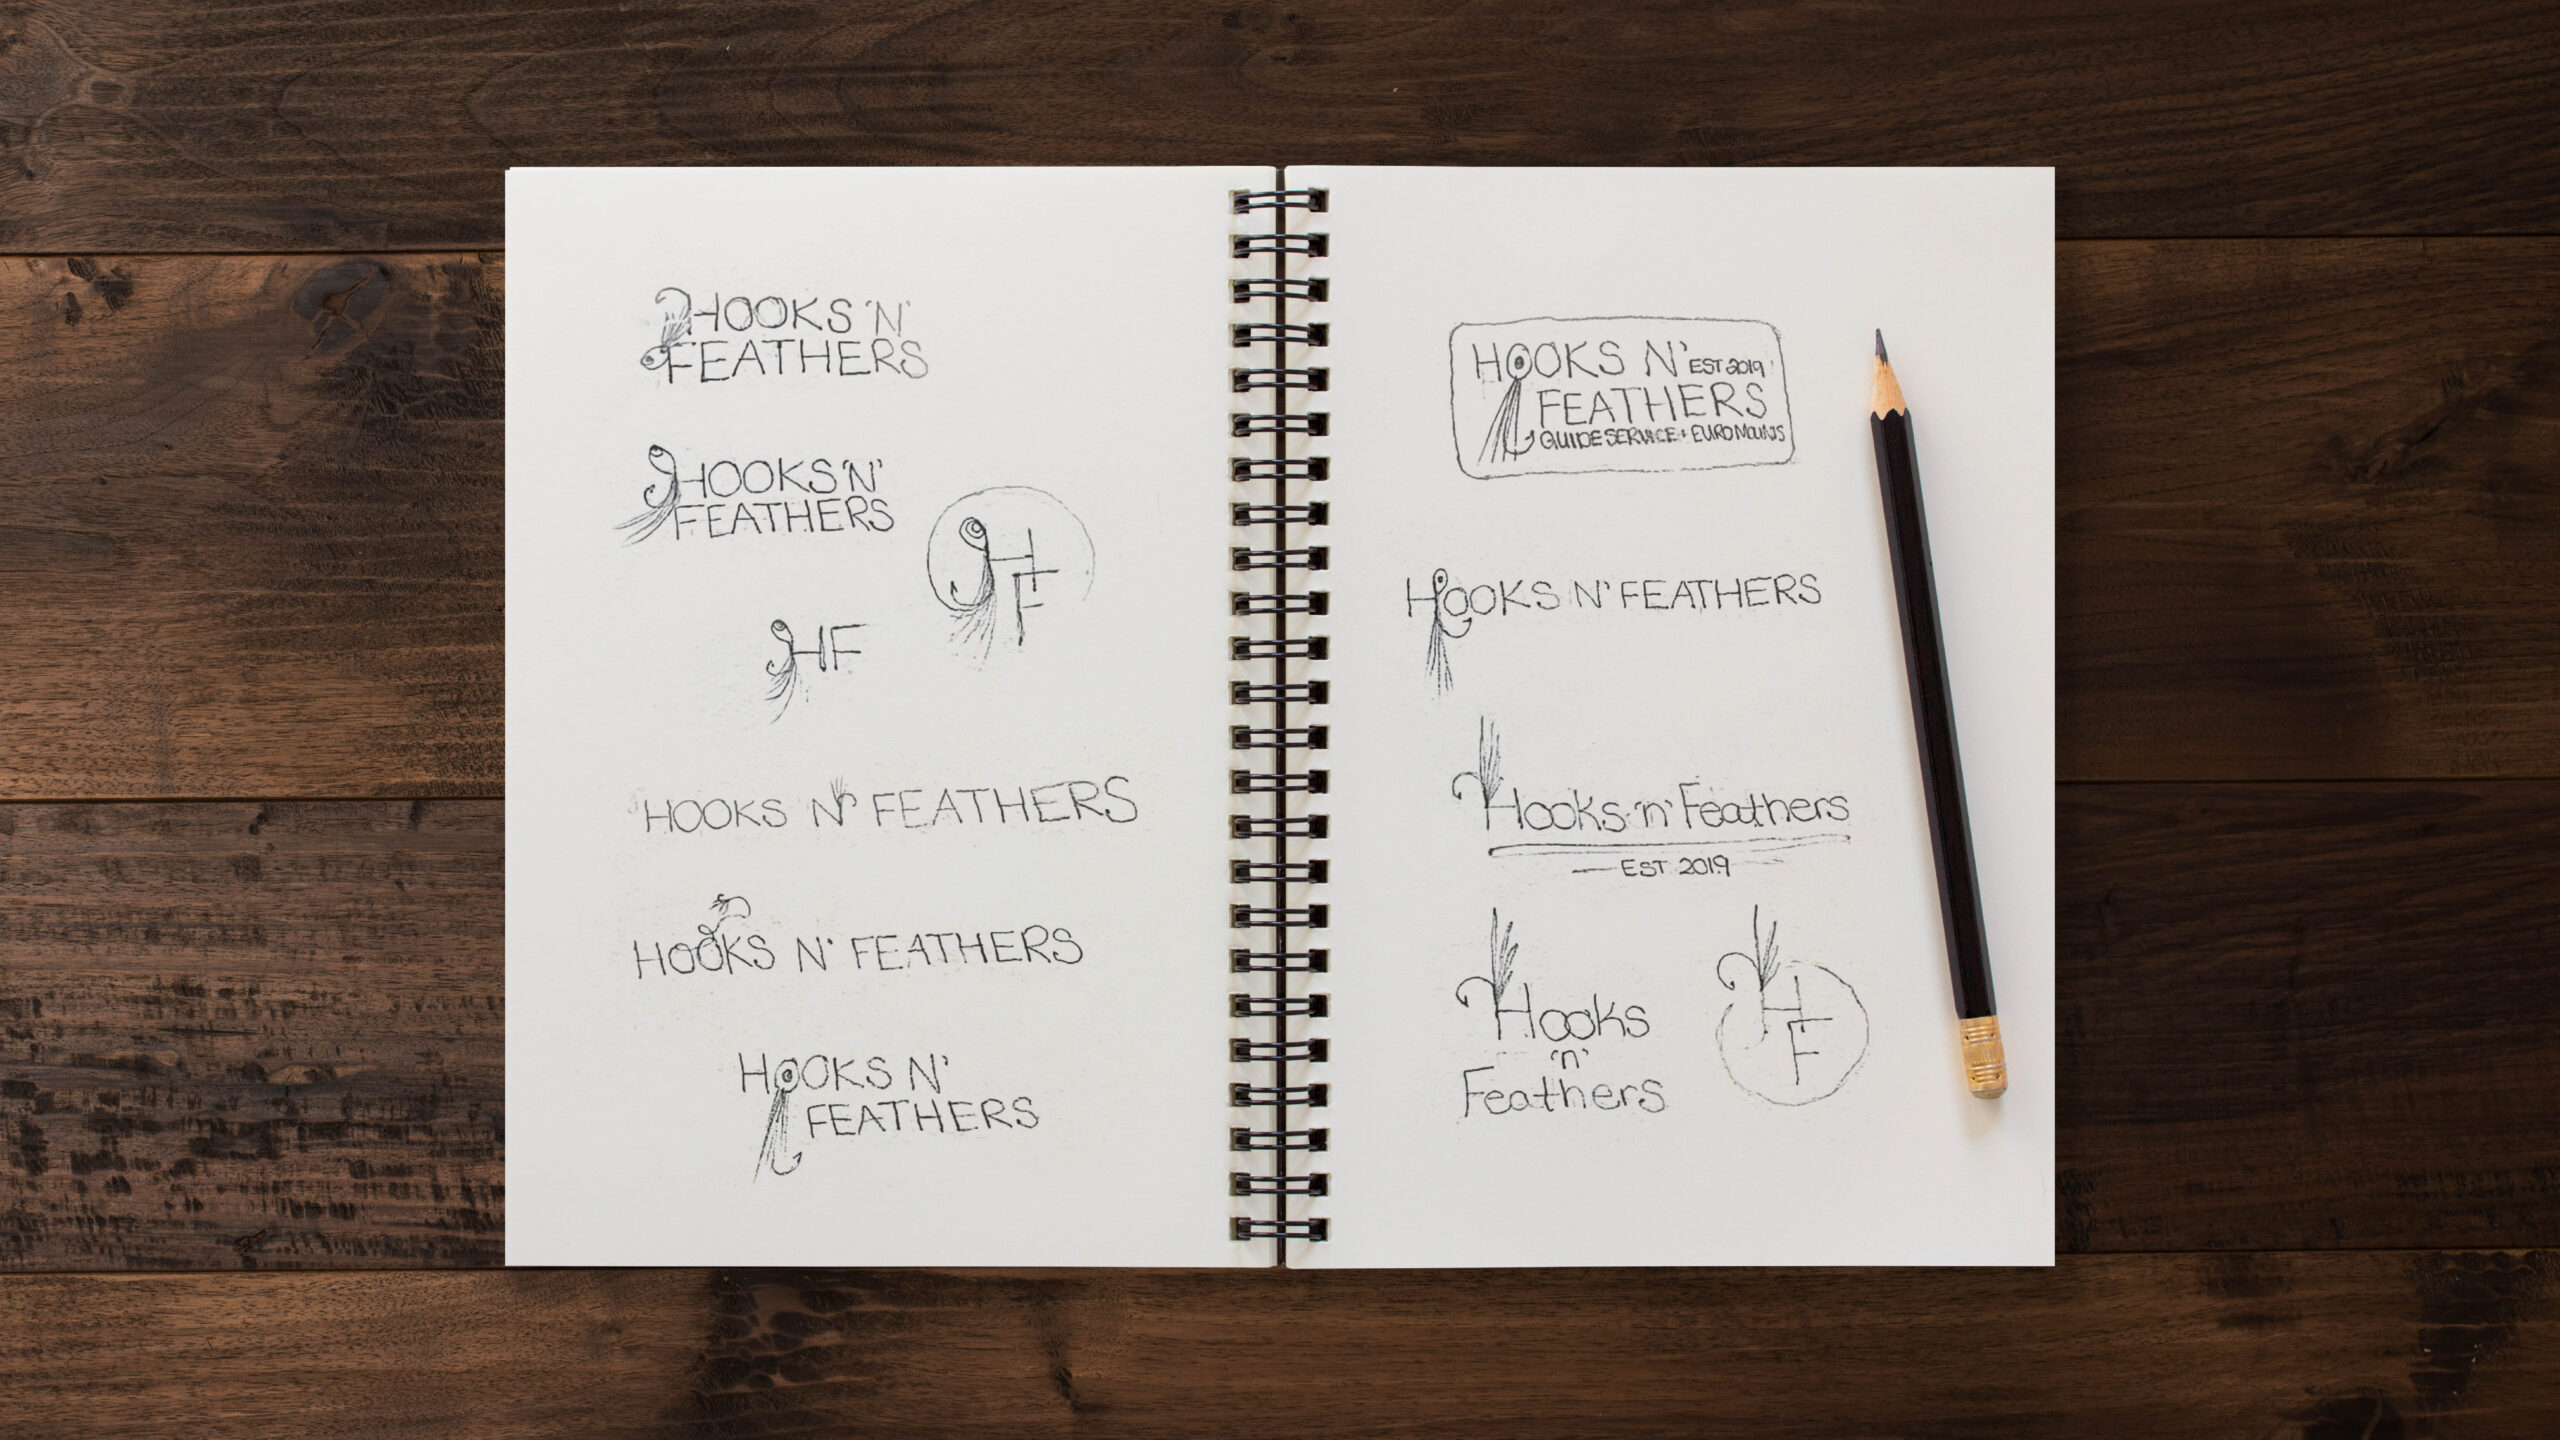 HOOKS 'N'
FEATHERS
HOOKS 'N'
FEATHERS
HF
HF
HOOKS N' FEATHERS
HOOKS N' FEATHERS
HOOKS N'
FEATHERS
HOOKS N' EST 2019
FEATHERS
GUIDE SERVICE + EURO MOUNTS
HOOKS N' FEATHERS
Hooks 'n' Feathers
EST 2019
Hooks
'n'
Feathers
HF